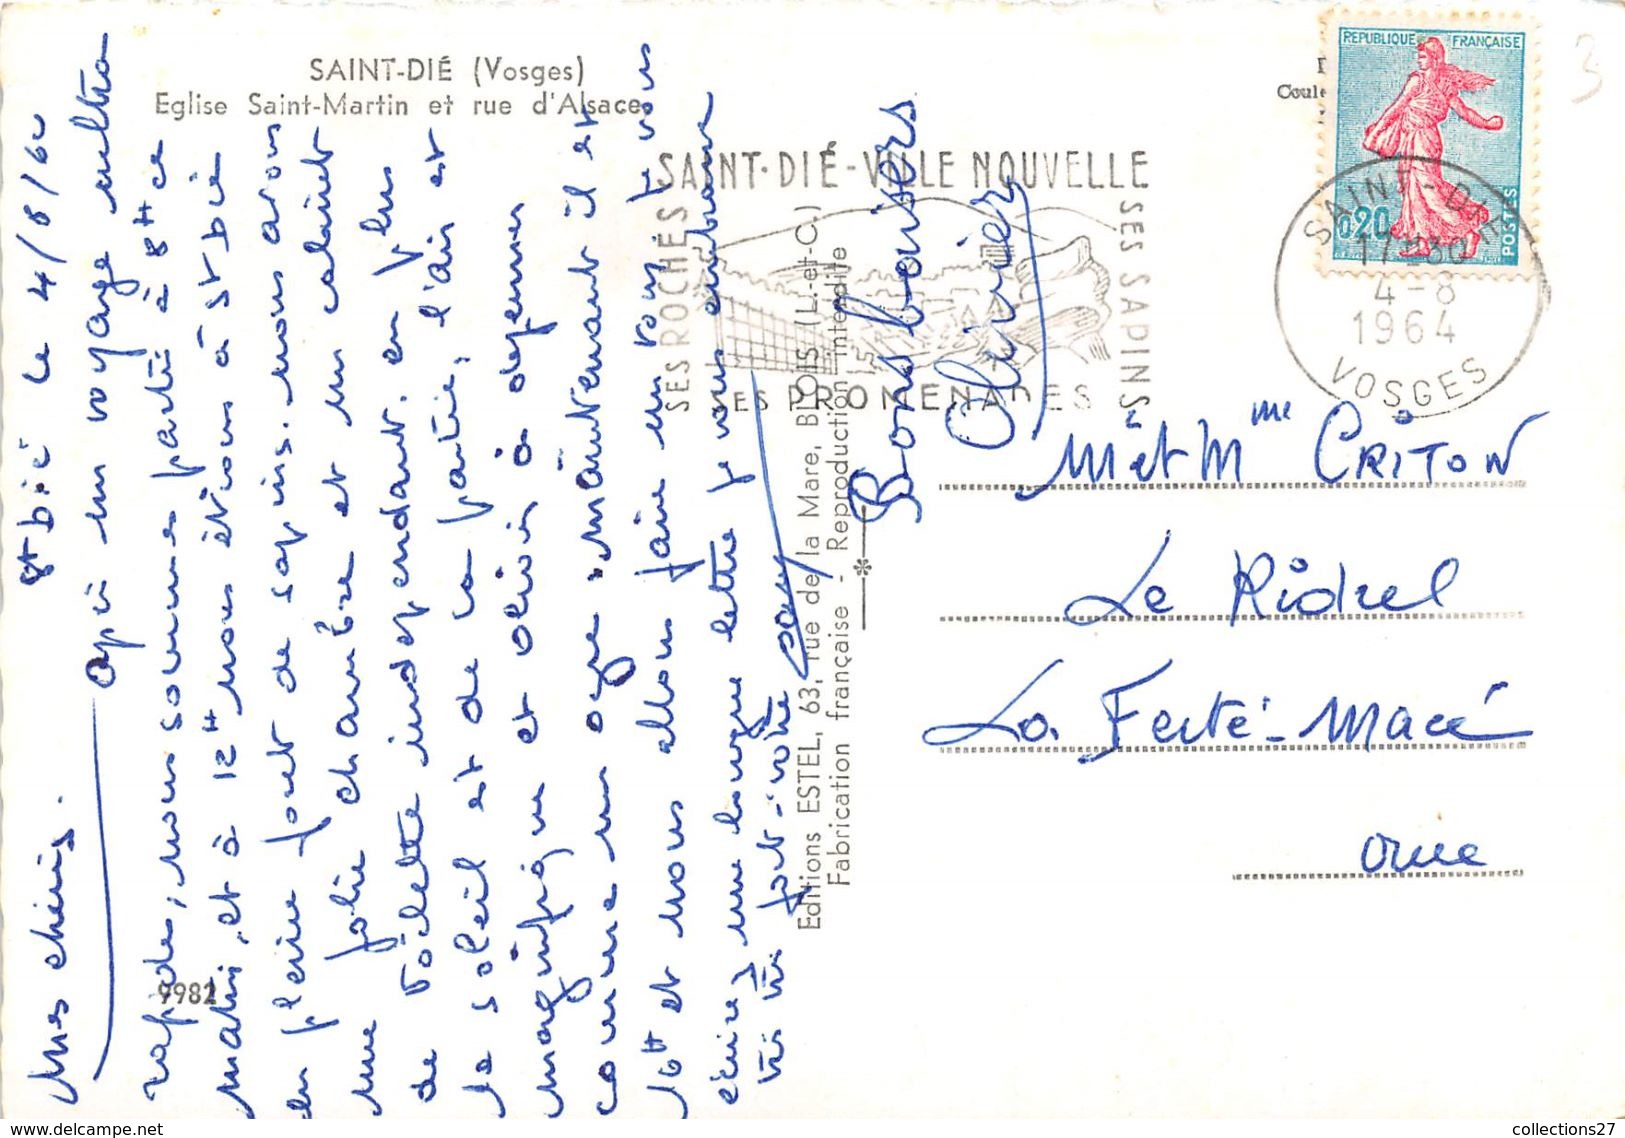 SAINT-DIÉ (Vosges)
Eglise Saint-Martin et rue d'Alsace
St Dié Le 4/8/64
Mes chéris.
après un voyage ultra
rapide, nous sommes parti à 8H ce
matin, et à 12H nous étions à St Dié
en pleine foret de sapins. nous avons
une jolie chambre et un cabinet
de toilette indépendant. en plus
le soleil est de la partie, l'air est
magnifique et olivier à dejeuner
comme un ogre maintenant il est
16H et nous allons faire un tour, je vous
écrirez une longue lettre je vous embrasse
très très fort. votre
Bons baisers
Olivier
9982
Editions ESTEL, 63, rue de la Mare, BLOIS (L.-et-C.)
Fabrication française - Reproduction interdite
SAINT-DIÉ - VILLE NOUVELLE
SES ROCHES
SES SAPINS
SES PROMENADES
Coule
REPUBLIQUE FRANÇAISE
0,20
POSTES
SAINT-DIÉ
17-30
4-8
1964
VOSGES
3
Mr et Mme CRITON
Le Ridrel
La Ferté-Macé
Orne
collections27